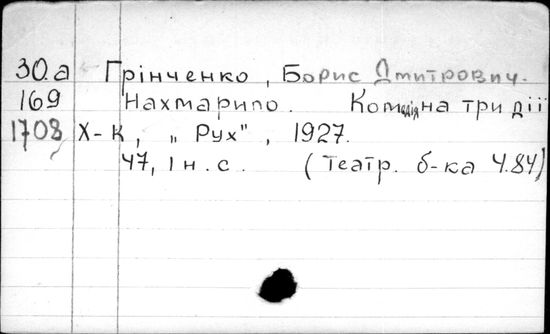 30.а Грінченко, Борис Дмитрович.
169 Нахмарило. Комедія на три дії
1708 Х-к, „Рух", 1927.
47, 1 н.с. (Театр. б-ка Ч.84)